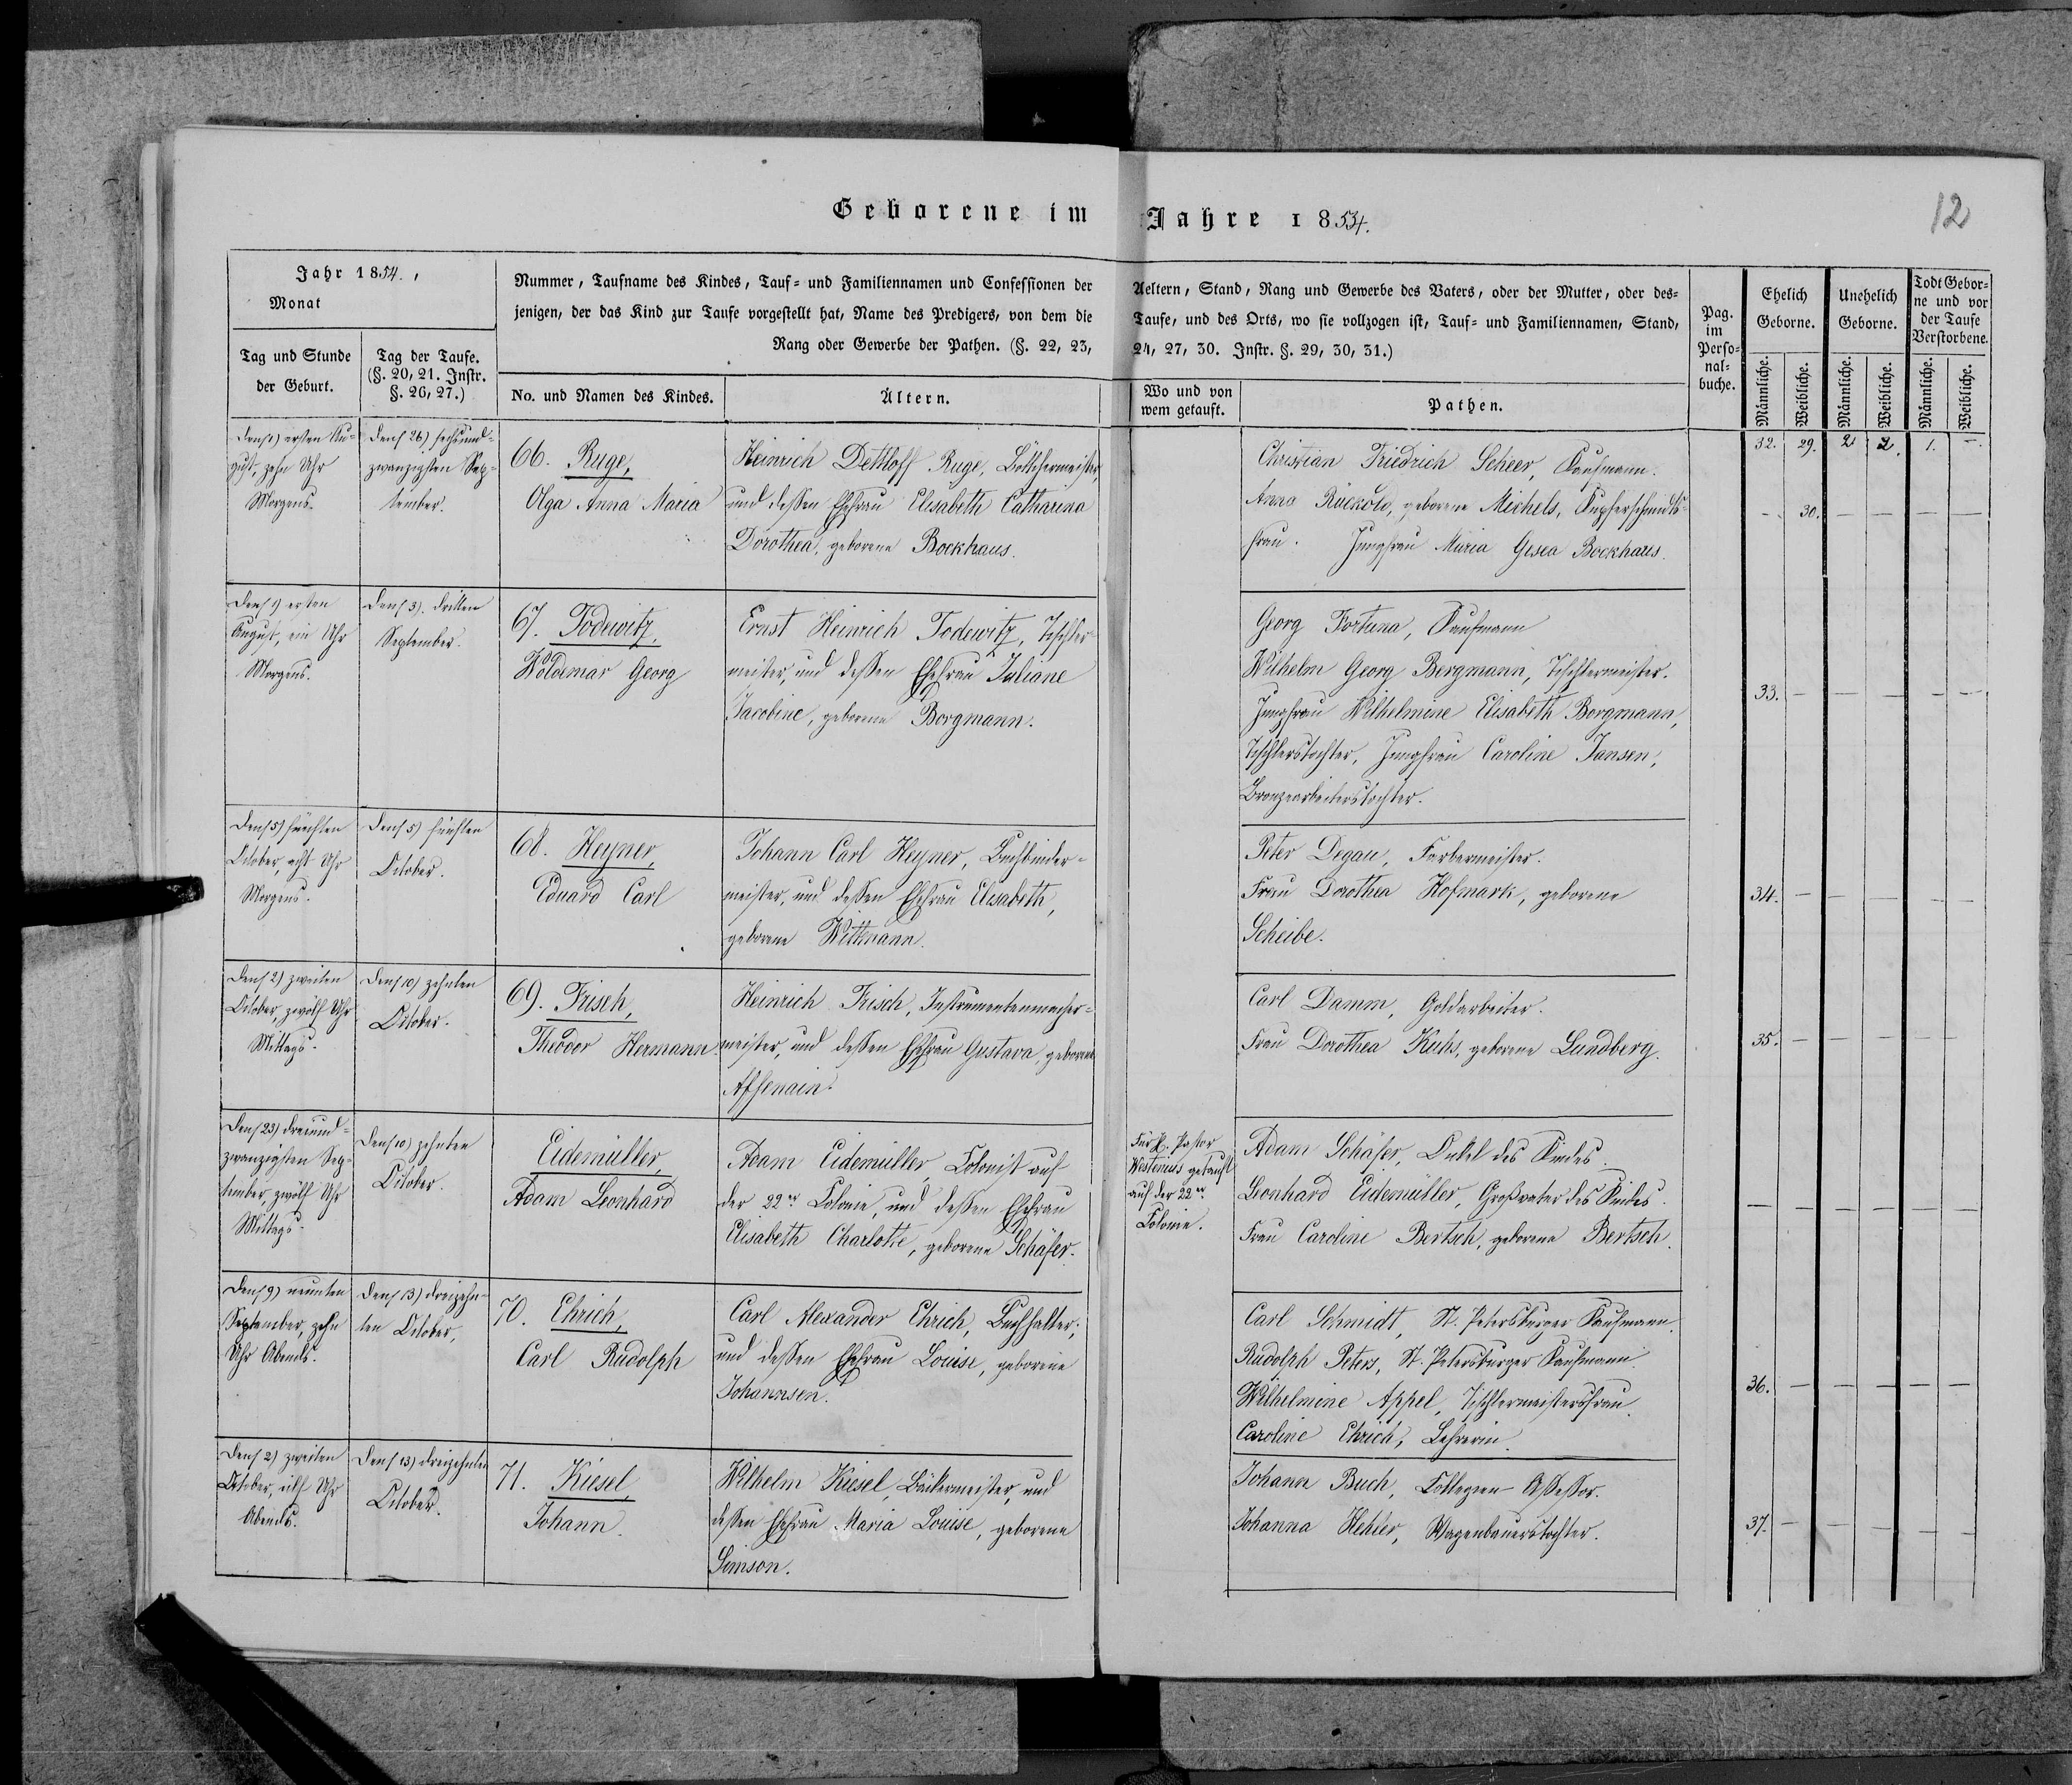 Geborene im Jahre 1854.
12
Jahr 1854.
Monat
Tag und Stunde
der Geburt.
Tag der Taufe.
(§. 20, 21. Instr.
§. 26, 27.)
Nummer, Taufname des Kindes, Tauf- und Familiennamen und Confessionen der
jenigen, der das Kind zur Taufe vorgestellt hat, Name des Predigers, von dem die
Rang oder Gewerbe der Pathen. (§. 22, 23,
No. und Namen des Kindes.
Ältern.
Aeltern, Stand, Rang und Gewerbe des Vaters, oder der Mutter, oder des-
Taufe, und des Orts, wo sie vollzogen ist, Tauf- und Familiennamen, Stand,
24, 27, 30. Instr. §. 29, 30, 31.)
Wo und von
wem getauft.
Pathen.
Pag.
im
Perso-
nal-
buche.
Ehelich
Geborne.
Unehelich
Geborne.
Todt Gebor-
ne und vor
der Taufe
Verstorbene.
Männliche.
Weibliche.
Männliche.
Weibliche.
Männliche.
Weibliche.
32. 29. 2 2. 1. —.
Den 1) ersten Au-
gust, zehn Uhr
Morgens.
Den 26) sechsund-
zwanzigsten Sep-
tember.
66. Ruge,
Olga Anna Maria
Heinrich Dettloff Ruge, Böttchermeister,
und dessen Ehefrau Elisabeth Catharina
Dorothea, geborene Bockhaus.
Christian Friedrich Scheer, Kaufmann.
Anna Rückold, geborene Michels, Kupferschmidts-
frau. Jungfrau Maria Gesea Bockhaus.
— 30. — — — —
Den 1) ersten
August, ein Uhr
Morgens.
Den 3). dritten
September.
67. Todewitz,
Woldemar Georg
Ernst Heinrich Todewitz, Tischler-
meister, und dessen Ehefrau Juliane
Jacobine, geborene Borgmann.
Georg Fortuna, Kaufmann
Wilhelm Georg Bergmann, Tischlermeister.
Jungfrau Wilhelmine Elisabeth Borgmann,
Tischlerstochter, Jungfrau Caroline Jansen,
Bronzearbeiterstochter.
33. — — — — —
Den 5) fünften
October, acht Uhr
Morgens.
Den 5) fünften
October.
68. Heyner,
Eduard Carl
Johann Carl Heyner, Buchbinder-
meister, und dessen Ehefrau Elisabeth,
geborene Wittmann.
Peter Degau, Färbermeister.
Frau Dorothea Hofmark, geborene
Scheibe.
34. — — — — —
Den 2) zweiten
October, zwölf Uhr
Mittags.
Den 10) zehnten
October.
69. Frisch,
Theodor Hermann
Heinrich Frisch, Instrumentenmacher-
meister, und dessen Ehefrau Gustava, geborene
Carl Damm, Goldarbeiter.
Frau Dorothea Kuhs, geborene Lundberg.
35. — — — — —
Den 23) dreiund-
zwanzigsten Sep-
tember, zwölf Uhr
Mittags.
Den 10) zehnten
October.
Eidemüller,
Adam Leonhard
Adam Eidemüller, Colonist auf
der 22er Colonie, und dessen Ehefrau
Elisabeth Charlotte, geborene Schäfer.
Für H. Pastor
Westenius getauft
auf der 22er
Colonie.
Adam Schäfer, Onkel des Kindes.
Leonhard Eidemüller, Großvater des Kindes.
Frau Caroline Bertsch, geborene Bertsch.
— — — — — —
Den 9) neunten
September, zehn
Uhr Abends.
Den 13) dreizehn-
ten October,
70. Ehrich,
Carl Rudolph
Carl Alexander Ehrich, Buchhalter,
und dessen Ehefrau Louise, geborene
Johannsen.
Carl Schmidt, St. Petersburger Kaufmann.
Rudolph Peters, St. Petersburger Kaufmann.
Wilhelmine Appel, Tischlermeistersfrau.
Caroline Ehrich, Lehrerin.
36. — — — — —
Den 2) zweiten
October, eilf Uhr
Abends.
Den 13) dreizehnten
October.
71. Kiesel,
Johann.
Wilhelm Kiesel, Bäckermeister, und
dessen Ehefrau Maria Louise, geborene
Simson.
Johann Buch, Collegien-Assessor.
Johanna Hehler, Wagenbauerstochter.
37. — — — — —